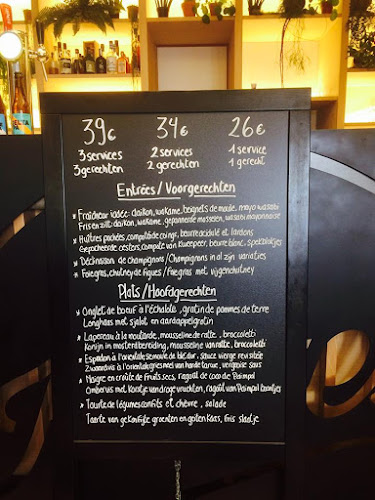 39€ 34€ 26€
3 services 2 services 1 service
3 gerechten 2 gerechten 1 gerecht
Entrées/Voorgerechten
* Fraîcheur iodée: daikon, wakame, beignets de moule, mayo wasabi
Fris en zilt: daikon, wakame, gepanneerde mosselen, wasabi mayonnaise
* Huîtres pochées, compotée de coings, beurre acidulé et lardons
Gepocheerde oesters, compote van kweepeer, beurre blanc, spekblokjes
* Déclinaison de champignons/Champignons in al zijn variaties
* Foie gras, chutney de figues/Foie gras met vijgenchutney
Plats/Hoofdgerechten
* Onglet de boeuf à l'échalote, gratin de pommes de terre
Longhaas met sjalot en aardappelgratin
* Lapereau à la moutarde, mousseline de ratte, broccoletti
Konijn in mosterdbereiding, mousseline van ratte, broccoletti
* Espadon à l'orientale semoule de blé dur, sauce vierge
Zwaardvis à l'orientale griesmeel van harde tarwe, vergine saus
* Neige en croûte de fruits secs, ragoût de coco de Paimpol
met korstje van droge vruchten, ragoût van Paimpol
* Tourte de légumes confits et chèvre, salade
Taarte van gekonfijte groenten en geitenkaas, fris slaatje